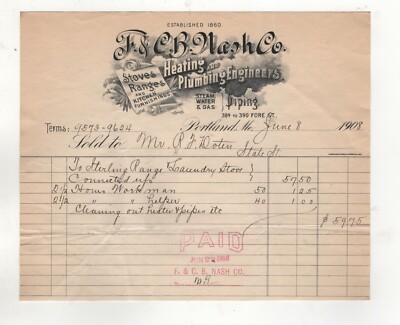 ESTABLISHED 1860.
F. & C.B. Nash Co.
Stoves
Ranges
AND
KITCHEN
FURNISHINGS
Heating AND
Plumbing Engineers.
STEAM
WATER
& GAS
Piping.
384 TO 390 FORE ST.
Terms: 9573-9624
Portland, Me. June 8 1908
Sold to Mr. R F Doten
State St
To Sterling Range & Laundry Stove
Connected up 57.50
2 1/2 Hours Workman 50 1 25
2 1/2 " " helper 40 1 00
Cleaning out heater & pipes etc
$ 59.75
PAID
1908
F. & C. B. NASH CO.